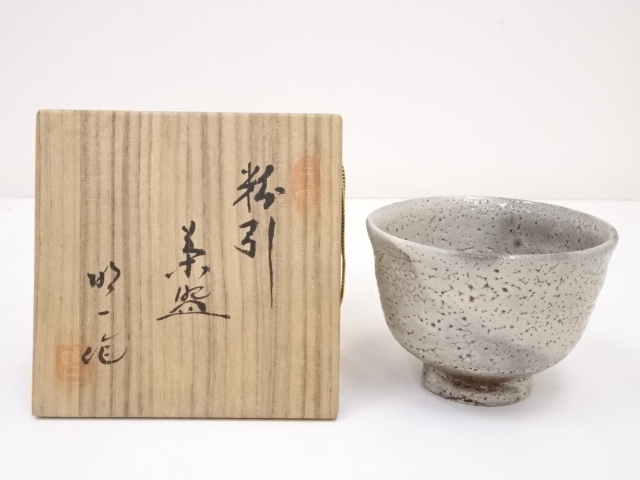 粉引
茶盌
明一作